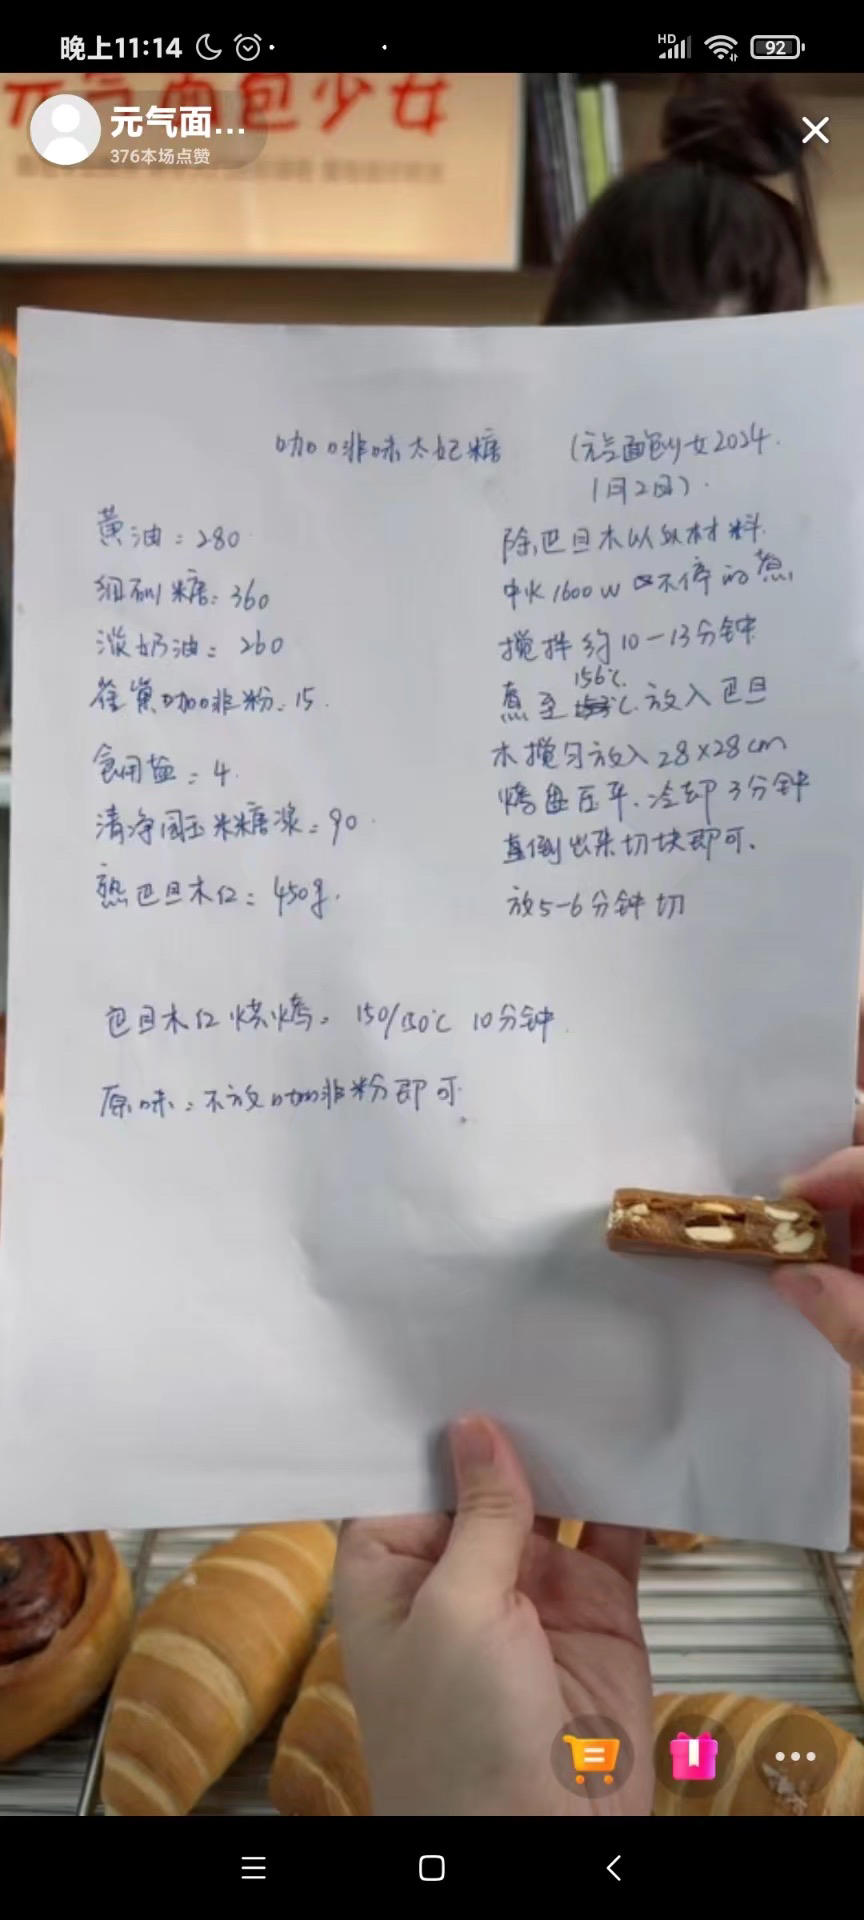 晚上11:14
HD
92
元气面包少女
元气面...
376本场点赞
咖啡味太妃糖
(元气面包少女2024.
1月2日).
黄油:280
细砂糖:360
淡奶油:260
雀巢咖啡粉:15.
食用盐:4.
清净园玉米糖浆:90.
熟巴旦木仁:450g.
除巴旦木以外材料
中火1600W 不停的煮,
搅拌约10-13分钟
156℃.
煮至 ℃.放入巴旦
木搅匀放入28×28cm
烤盘压平.冷却3分钟
直倒出来切块即可.
放5-6分钟切
巴旦木仁烘烤:150/150℃ 10分钟.
原味:不放咖啡粉即可.